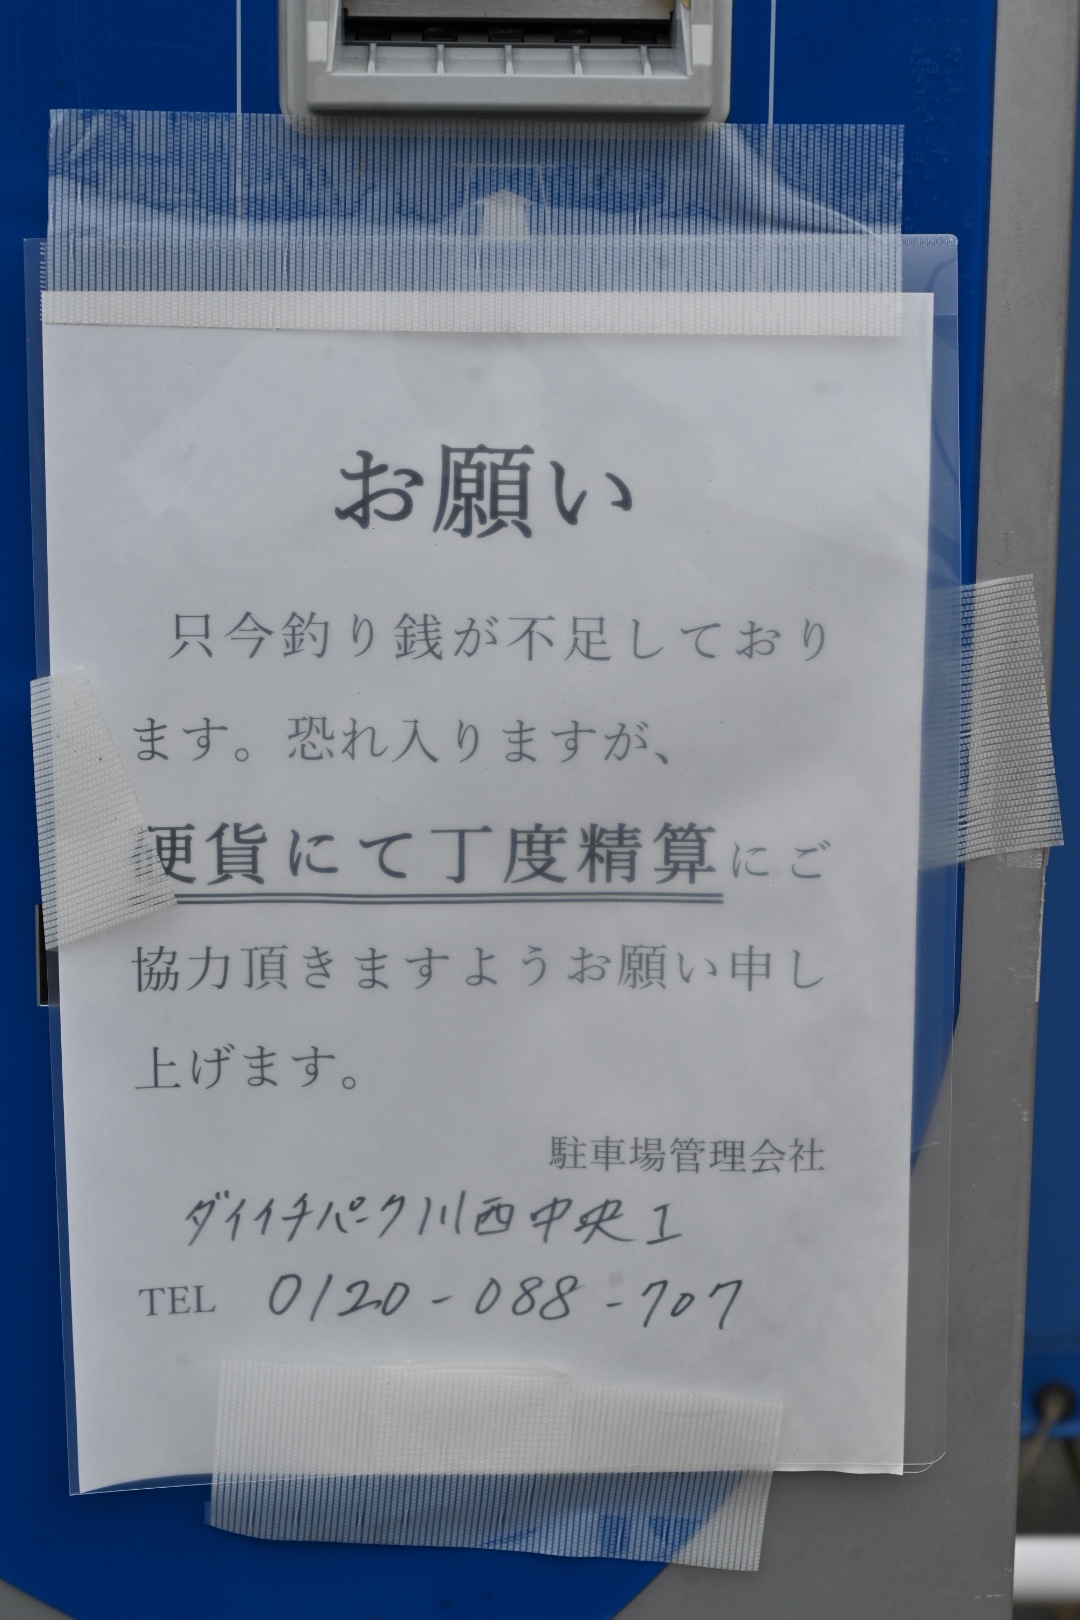 お願い
只今釣り銭が不足しており
ます。恐れ入りますが、
硬貨にて丁度精算にご
協力頂きますようお願い申し
上げます。
駐車場管理会社
ダイイチパーク川西中央I
TEL 0120-088-707